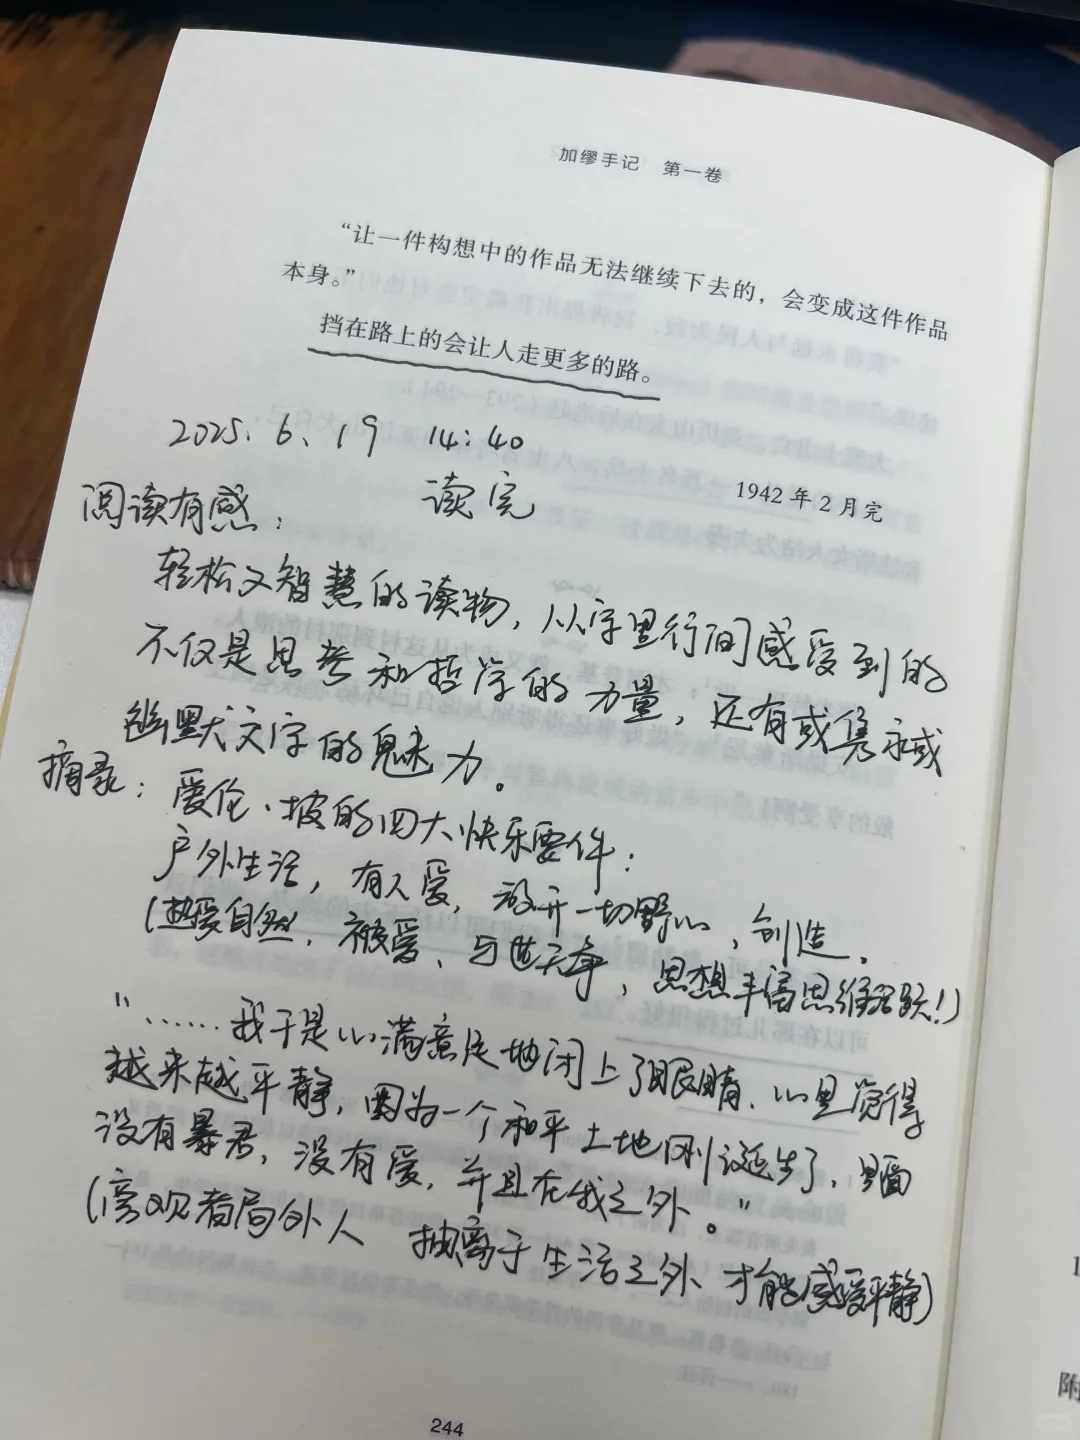 加缪手记 第一卷
“让一件构想中的作品无法继续下去的，会变成这件作品
本身。”
挡在路上的会让人走更多的路。
2025.6.19 14:40
读完
1942年2月完
阅读有感：
轻松又智慧的读物，从字里行间感受到的
不仅是思考和哲学的力量，还有或隽永或
幽默文字的魅力。
摘录：爱伦·坡的四大快乐要件：
户外生活，有人爱，放开一切野心，创造。
(热爱自然，被爱、与世无争，思想丰富思维活跃！)
“……我于是心满意足地闭上了眼睛，心里觉得
越来越平静，因为一个和平土地刚诞生了，里面
没有暴君，没有爱，并且在我之外。”
(旁观者局外人 抽离于生活之外 才能感受平静)
244
1
附